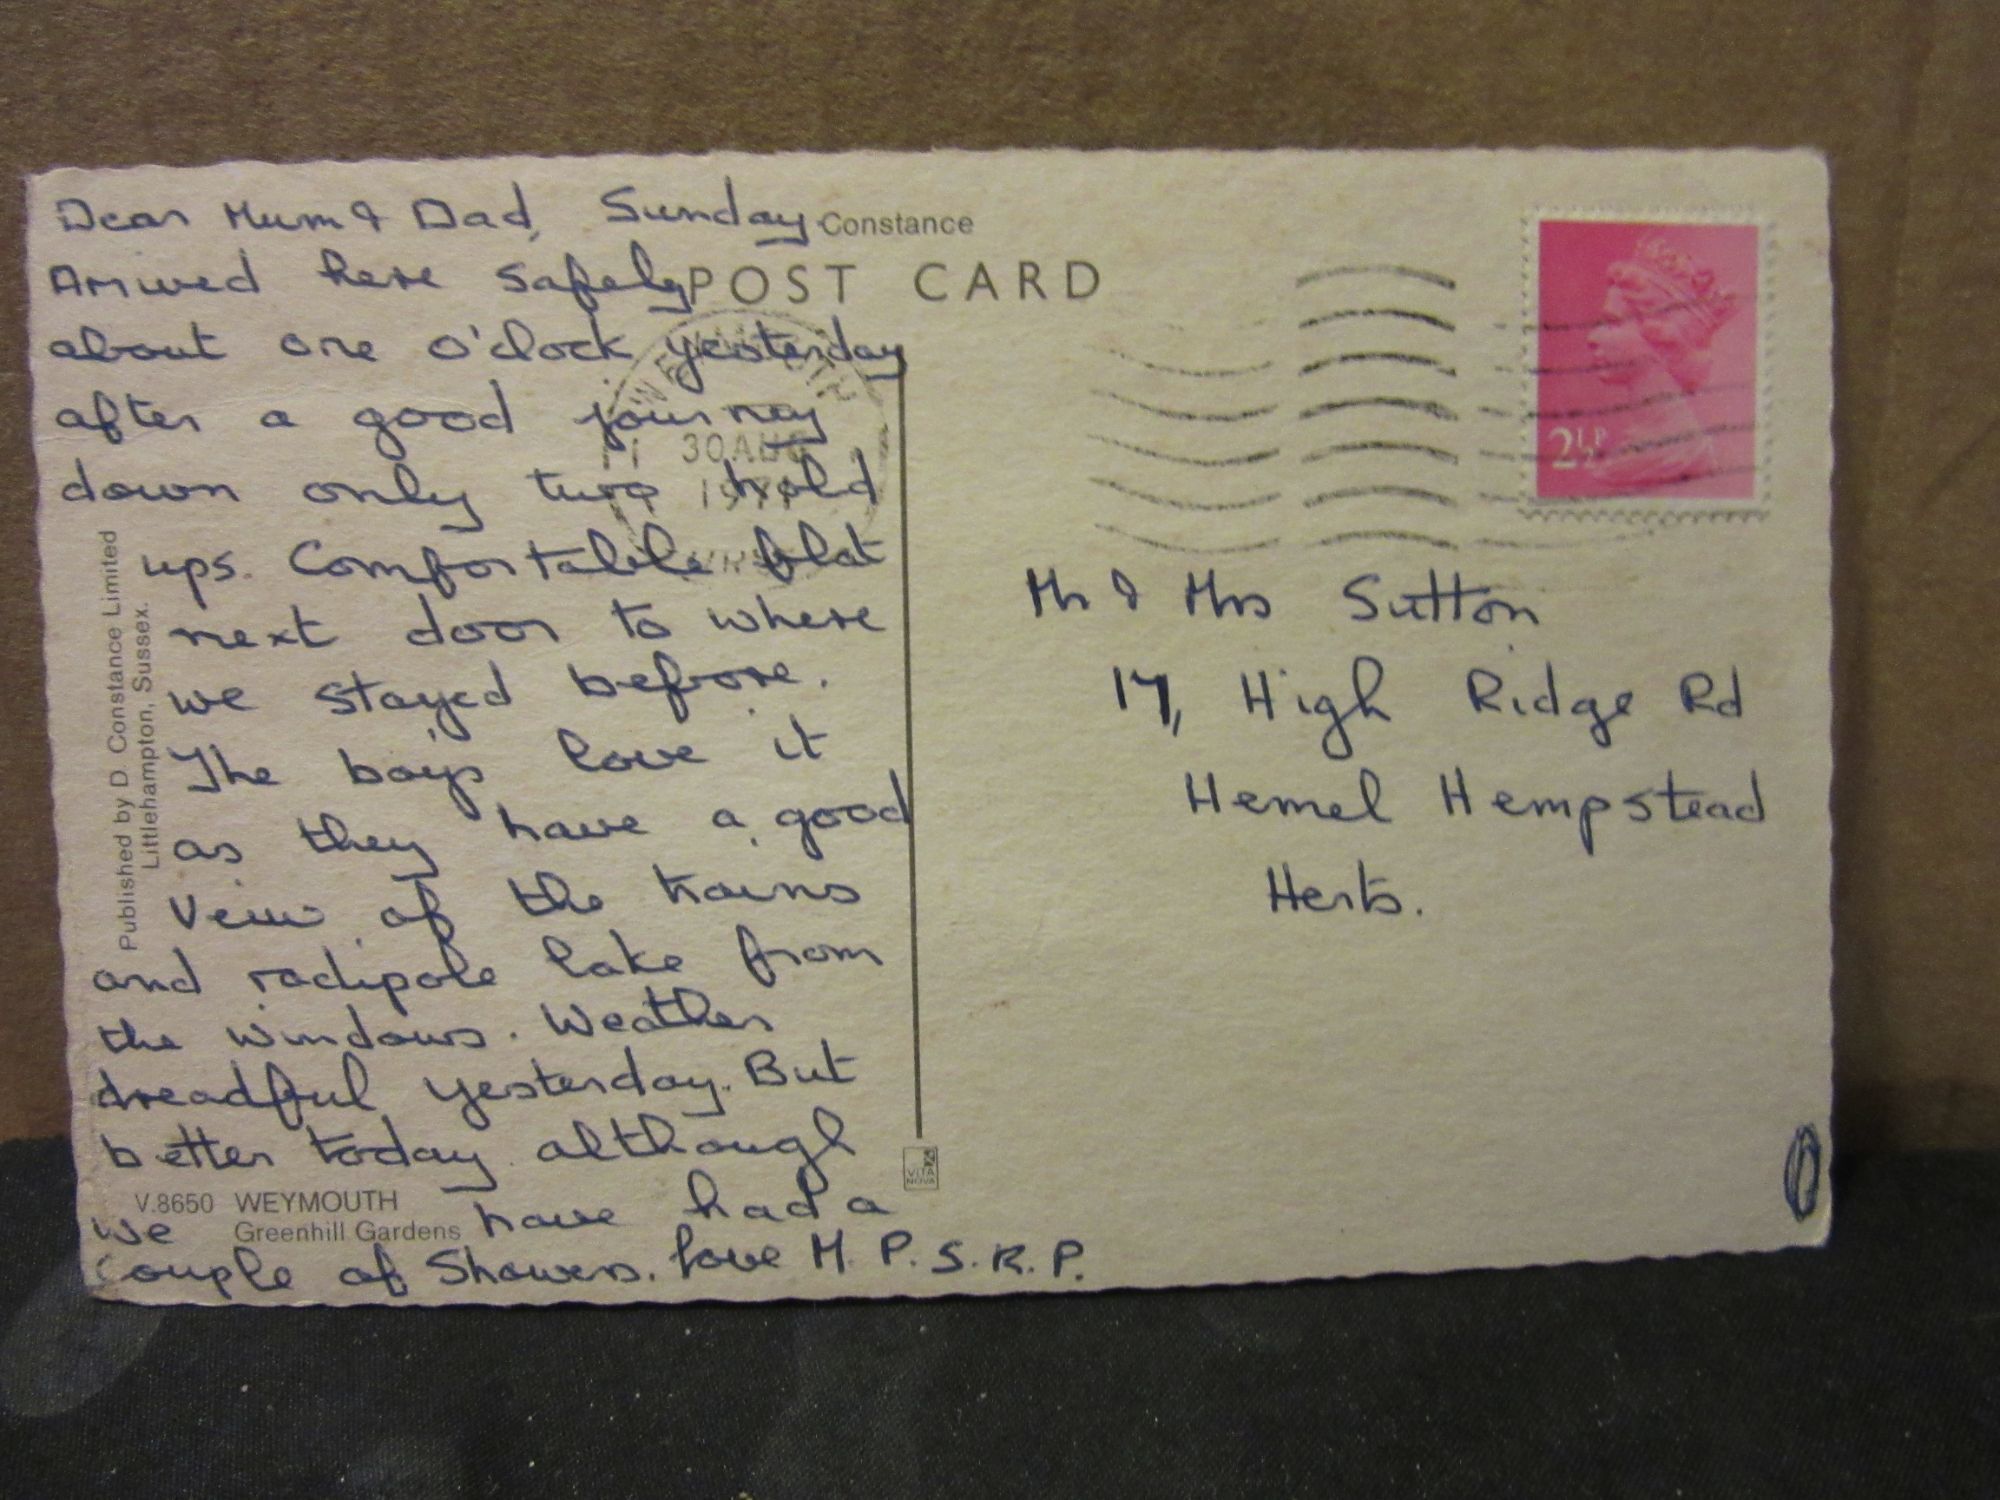 Dear Mum & Dad, Sunday
Arrived here safely
about one o'clock yesterday
after a good journey
down only two hold
ups. Comfortable flat
next door to where
we stayed before.
The boys love it
as they have a good
Veiw of the trains
and radipole lake from
the windows. Weather
dreadful yesterday. But
better today although
we have had a
Couple of Showers. love M. P. S. R. P.
Constance
POST CARD
WEYMOUTH
30 AUG
2½P
Mr & Mrs Sutton
17, High Ridge Rd
Hemel Hempstead
Herts.
Published by D. Constance Limited
Littlehampton, Sussex.
V.8650 WEYMOUTH
Greenhill Gardens
VITA
NOVA